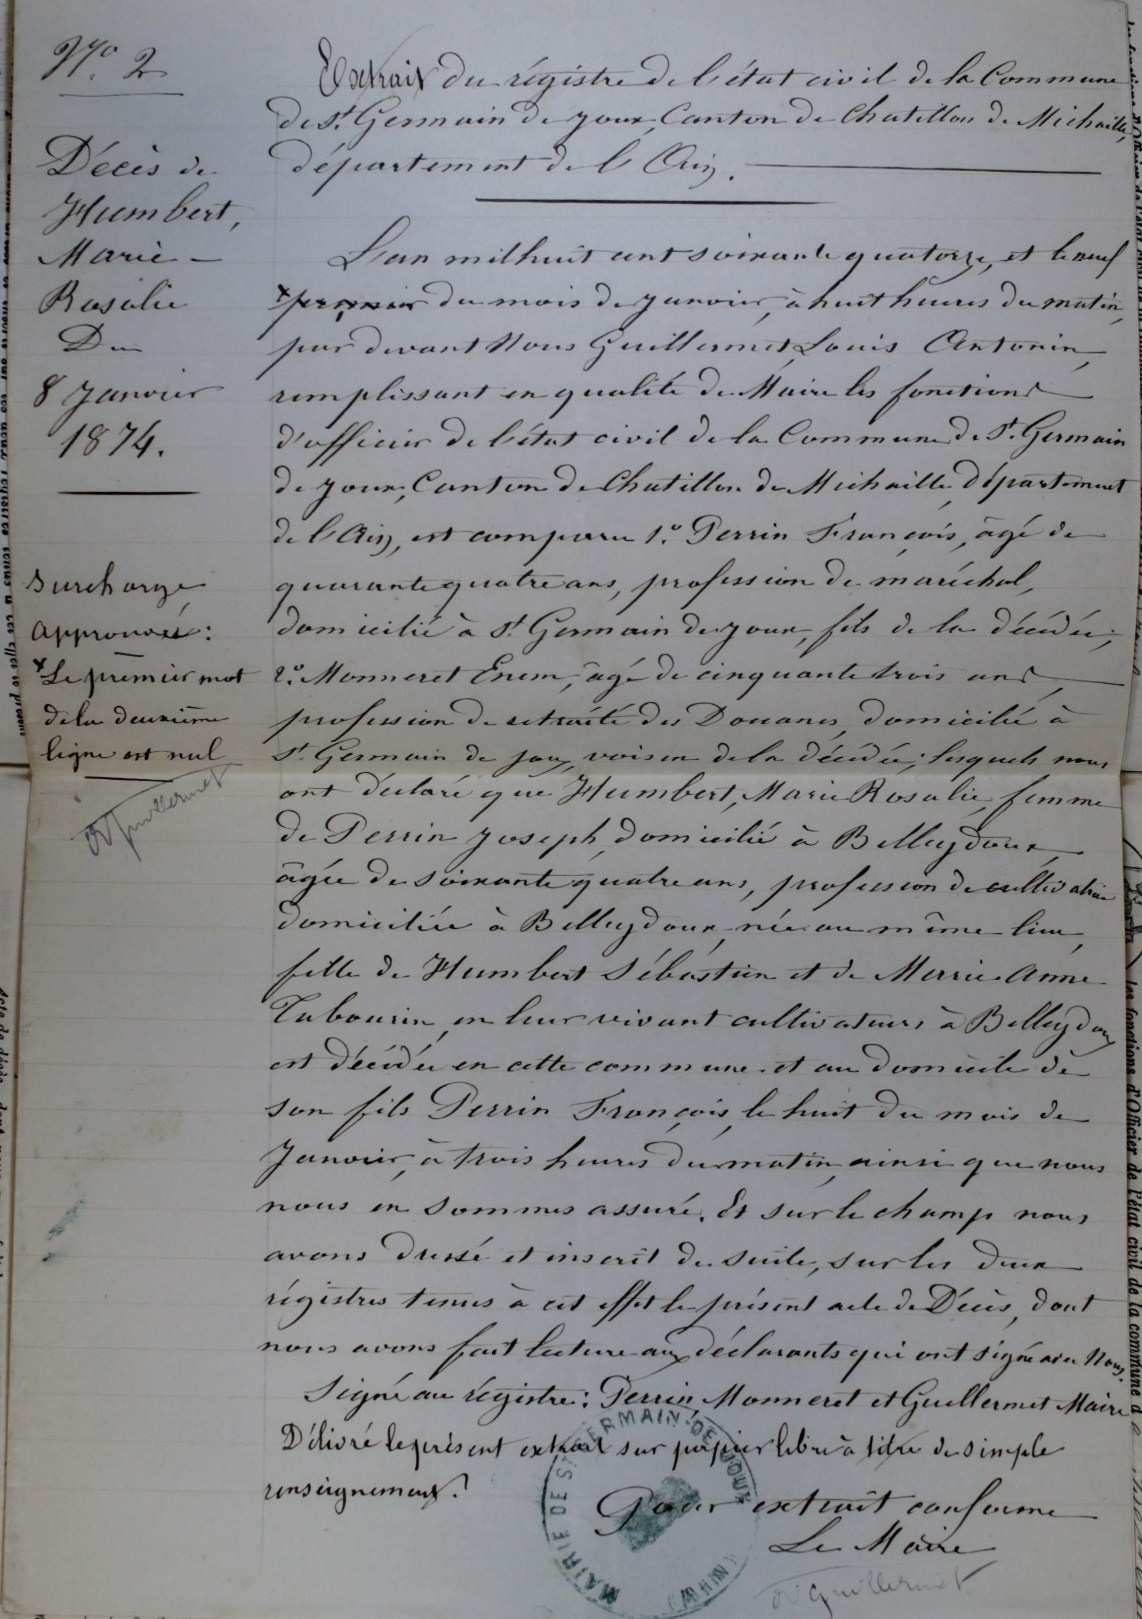 N.o 2
Décès de
Humbert,
Marie-
Rosalie
Du
8 Janvier
1874.
Surcharge
approuvée:
x Le premier mot
de la deuxième
ligne est nul
Guillermet
Extrait du régistre de l'état civil de la Commune
de St. Germain de joux, Canton de Chatillon de Michaille,
département de l'Ain.
L'an mil huit cent soixante quatorze, et le neuf
x premier du mois de janvier, à huit heures du matin,
par devant Nous Guillermet, Louis Antonin,
remplissant en qualité de Maire les fonctions
d'officier de l'état civil de la Commune de St. Germain
de joux, Canton de Chatillon de Michaille, département
de l'Ain, est comparu 1.o Perrin François, âgé de
quarante quatre ans, profession de maréchal,
domicilié à St. Germain de joux, fils de la décédée;
2.o Monneret Enem, âgé de cinquante trois ans,
profession de retraité des Douanes, domicilié à
St. Germain de joux, voisin de la décédée; lesquels nous
ont déclaré que Humbert, Marie Rosalie, femme
de Perrin Joseph, domicilié à Belleydoux,
âgée de soixante quatre ans, profession de cultivatrice
domiciliée à Belleydoux, née au même lieu,
fille de Humbert Sébastien et de Marie Anne
Tabourin, en leur vivant cultivateurs à Belleydoux
est décédée en cette commune et au domicile de
son fils Perrin François, le huit du mois de
Janvier, à trois heures du matin, ainsi que nous
nous en sommes assuré. Et sur le champ nous
avons dressé et inscrit de suite, sur les deux
régistres tenus à cet effet le présent acte de Décès, dont
nous avons fait lecture aux déclarants qui ont signé avec Nous.
Signé au régistre: Perrin, Monneret et Guillermet Maire
Délivré le présent extrait sur papier libre à titre de simple
renseignement.
Pour extrait conforme
Le Maire
Guillermet
MAIRIE DE ST GERMAIN-DE-JOUX